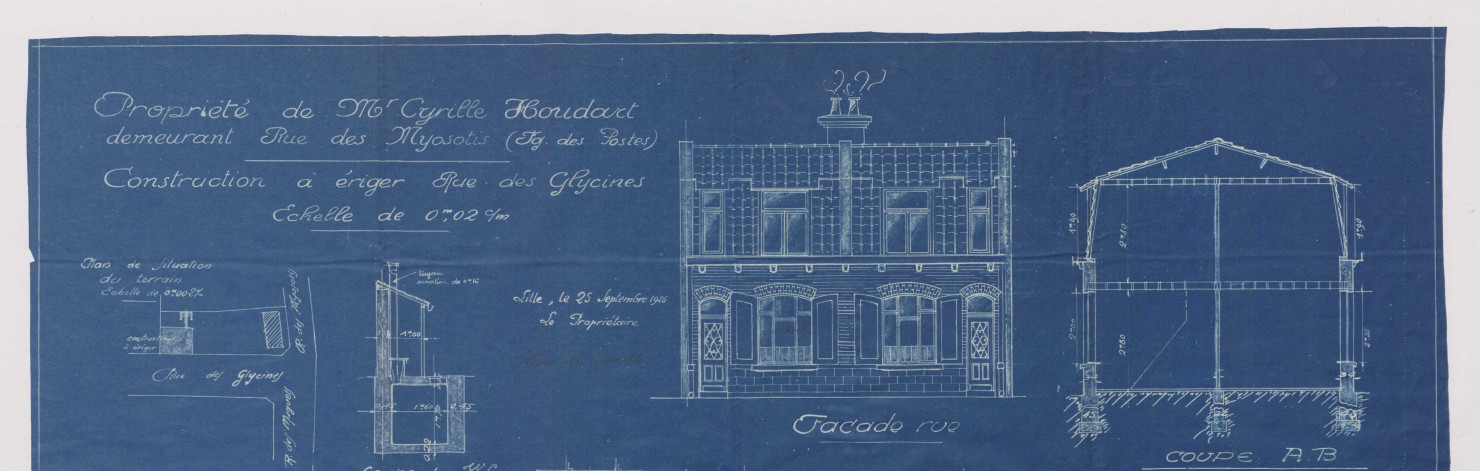 Propriété de Mr Cyrille Houdart
demeurant Rue des Myosotis (Fg. des Postes)
Construction à ériger Rue des Glycines
Echelle de 0m,02 c/m
Plan de situation
du terrain
Echelle de 0m002%
construction
à ériger
Rue des Glycines
R. des Myosotis
R. des Myosotis
tuyau
aération de 0m16
1m00
0,45 1m60 0,45
0,20
Lille, le 25 Septembre 1926
Le Propriétaire
Façade rue
1m90
2m80
1m90
2m80
COUPE A.B